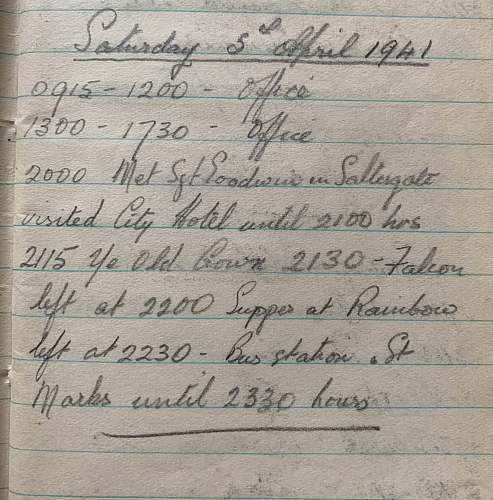 Saturday 5th April 1941
0915 - 1200 - Office
1300 - 1730 - Office
2000 Met Sgt Goodwin in Saltergate
visited City Hotel until 2100 hrs
2115 Ye Old Crown 2130 - Falcon
left at 2200 Supper at Rainbow
left at 2230 - Bus station . St
Marks until 2330 hours